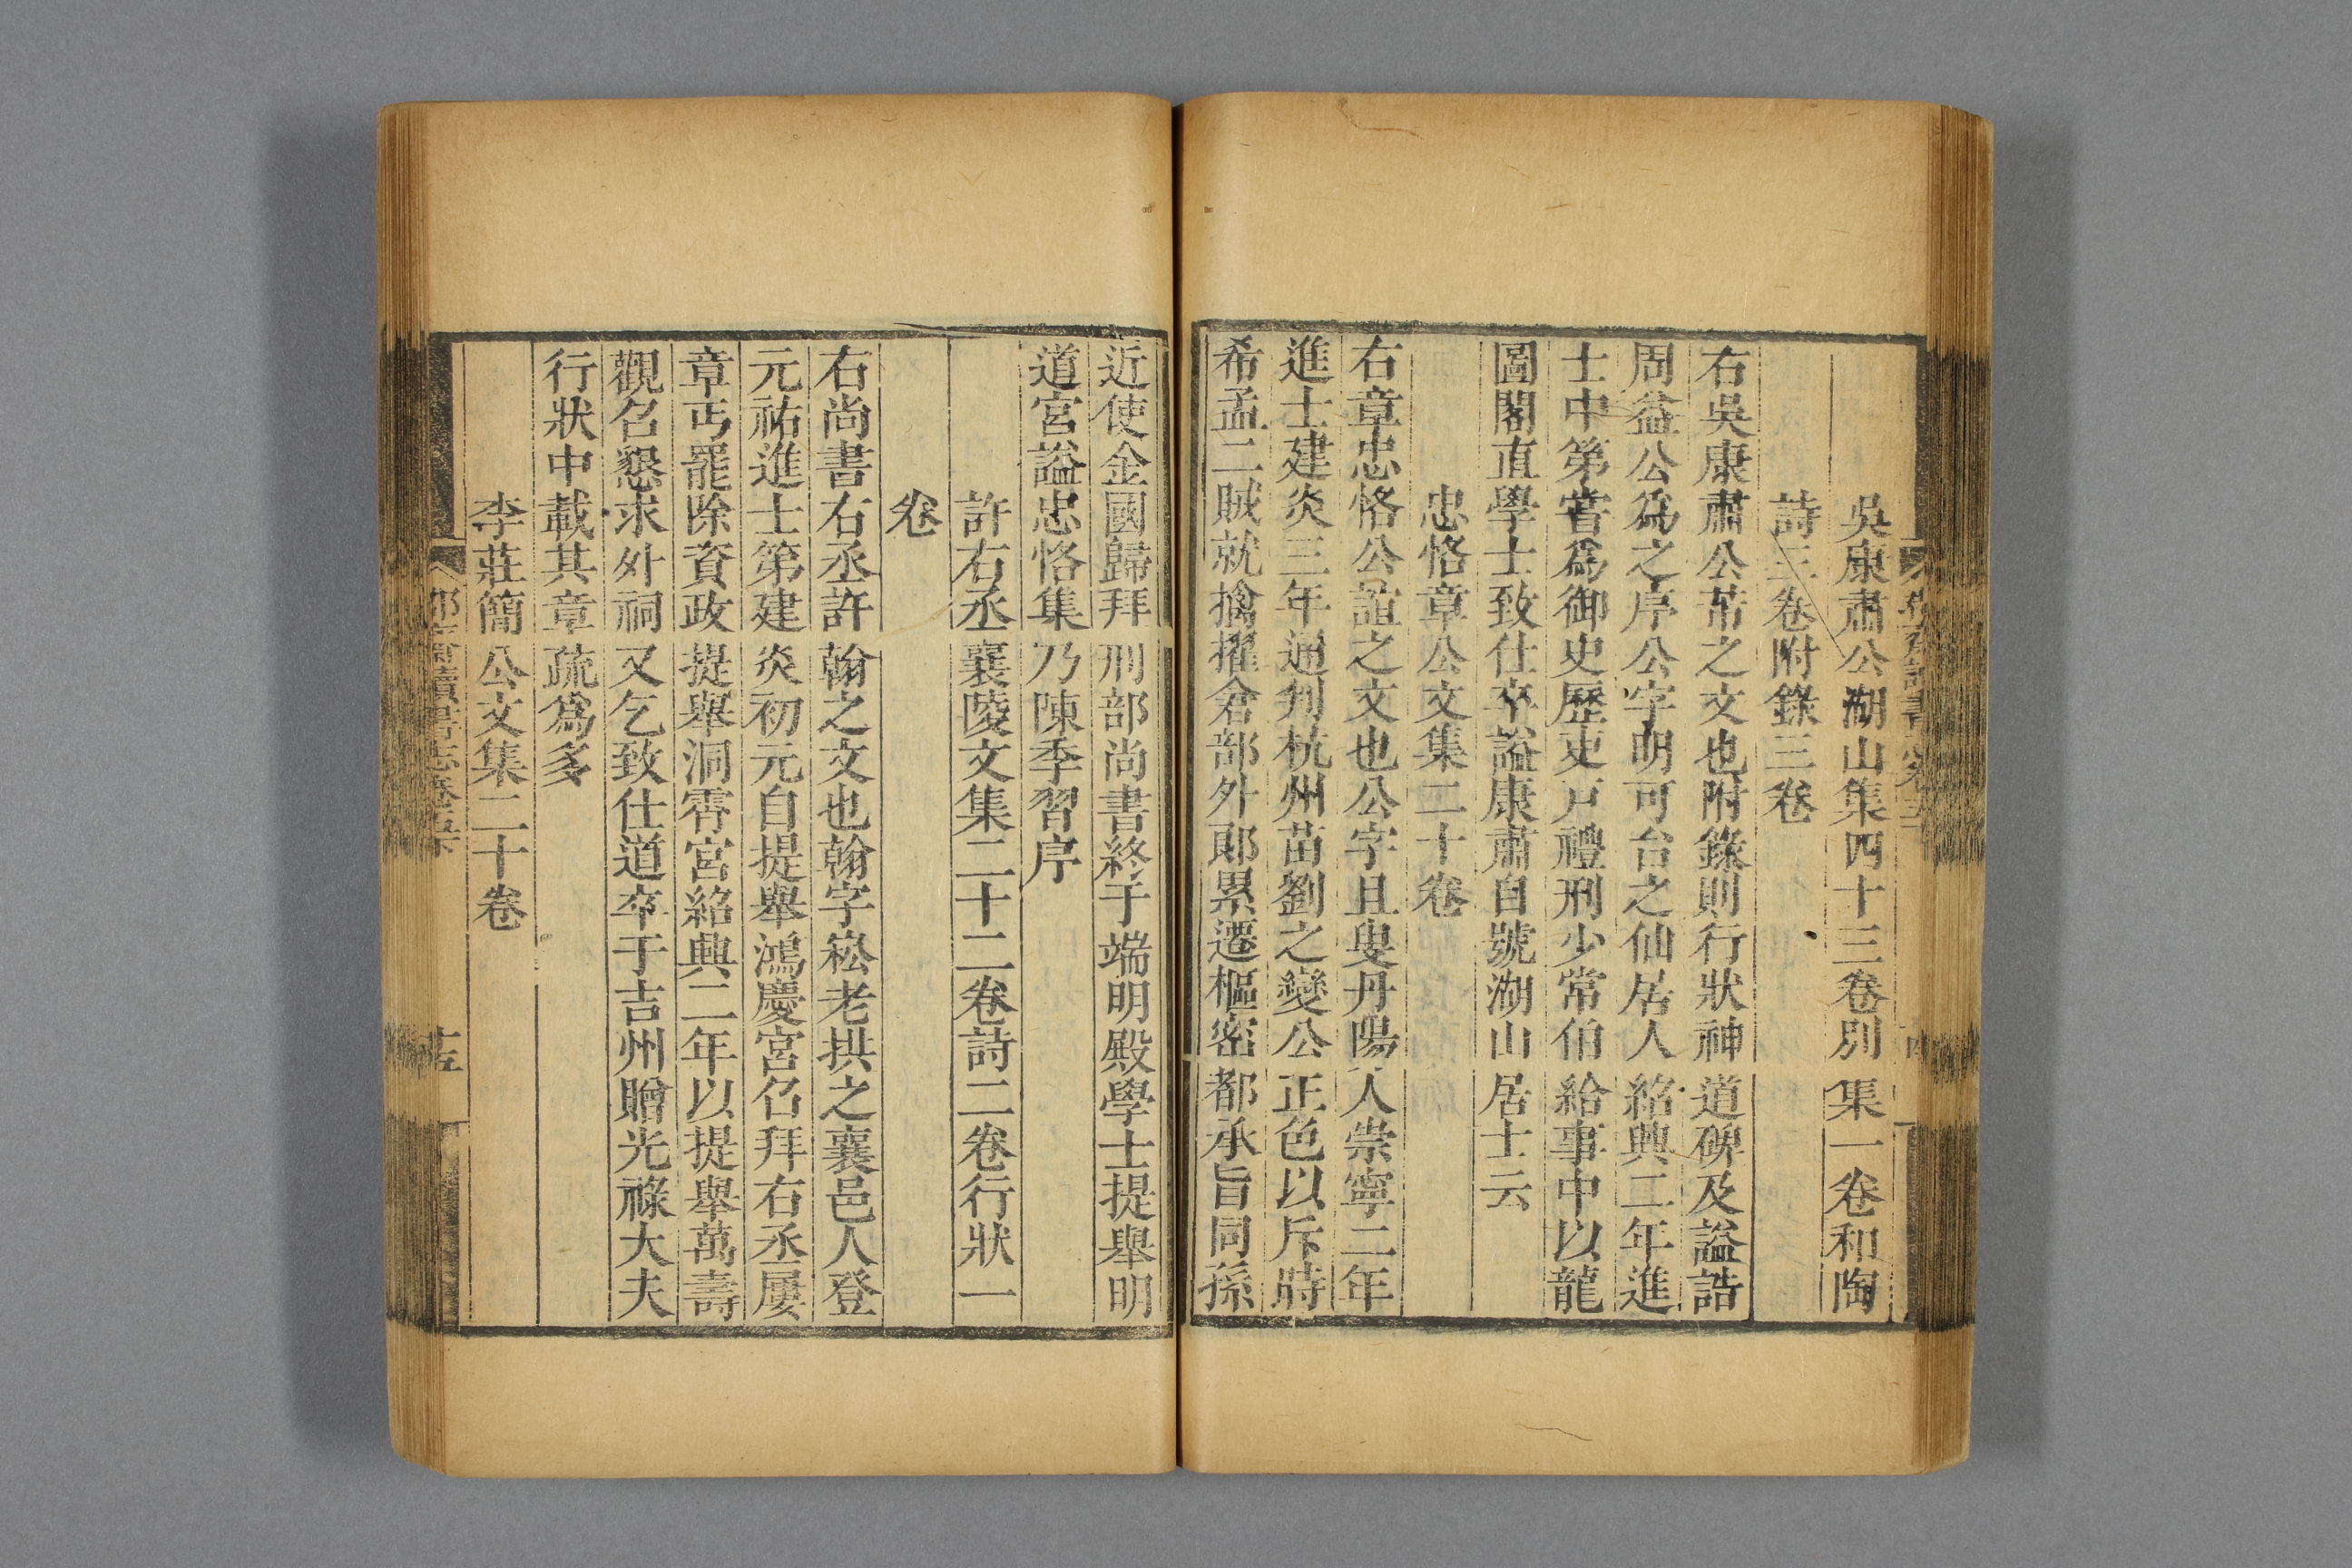 吳康肅公湖山集四十三卷別集一卷和陶
詩三卷附錄三卷
右吳康肅公芾之文也附錄則行狀神道碑及謚誥
周益公爲之序公字明可台之仙居人紹興二年進
士中第嘗爲御史歷吏戸禮刑少常伯給事中以龍
圖閣直學士致仕卒謚康肅自號湖山居士云
忠恪章公文集二十卷
右章忠恪公誼之文也公字且叟丹陽人崇寧二年
進士建炎三年通判杭州苗劉之變公正色以斥時
希孟二賊就擒擢倉部外郎累遷樞密都承旨同孫
近使金國歸拜刑部尚書終于端明殿學士提舉明
道宮謚忠恪集乃陳季習序
許右丞襄陵文集二十二卷詩二卷行狀一
卷
右尚書右丞許翰之文也翰字崧老拱之襄邑人登
元祐進士第建炎初元自提舉鴻慶宮召拜右丞屢
章丐罷除資政提舉洞霄宮紹興二年以提舉萬壽
觀召懇求外祠又乞致仕道卒于吉州贈光祿大夫
行狀中載其章疏爲多
李莊簡公文集二十卷